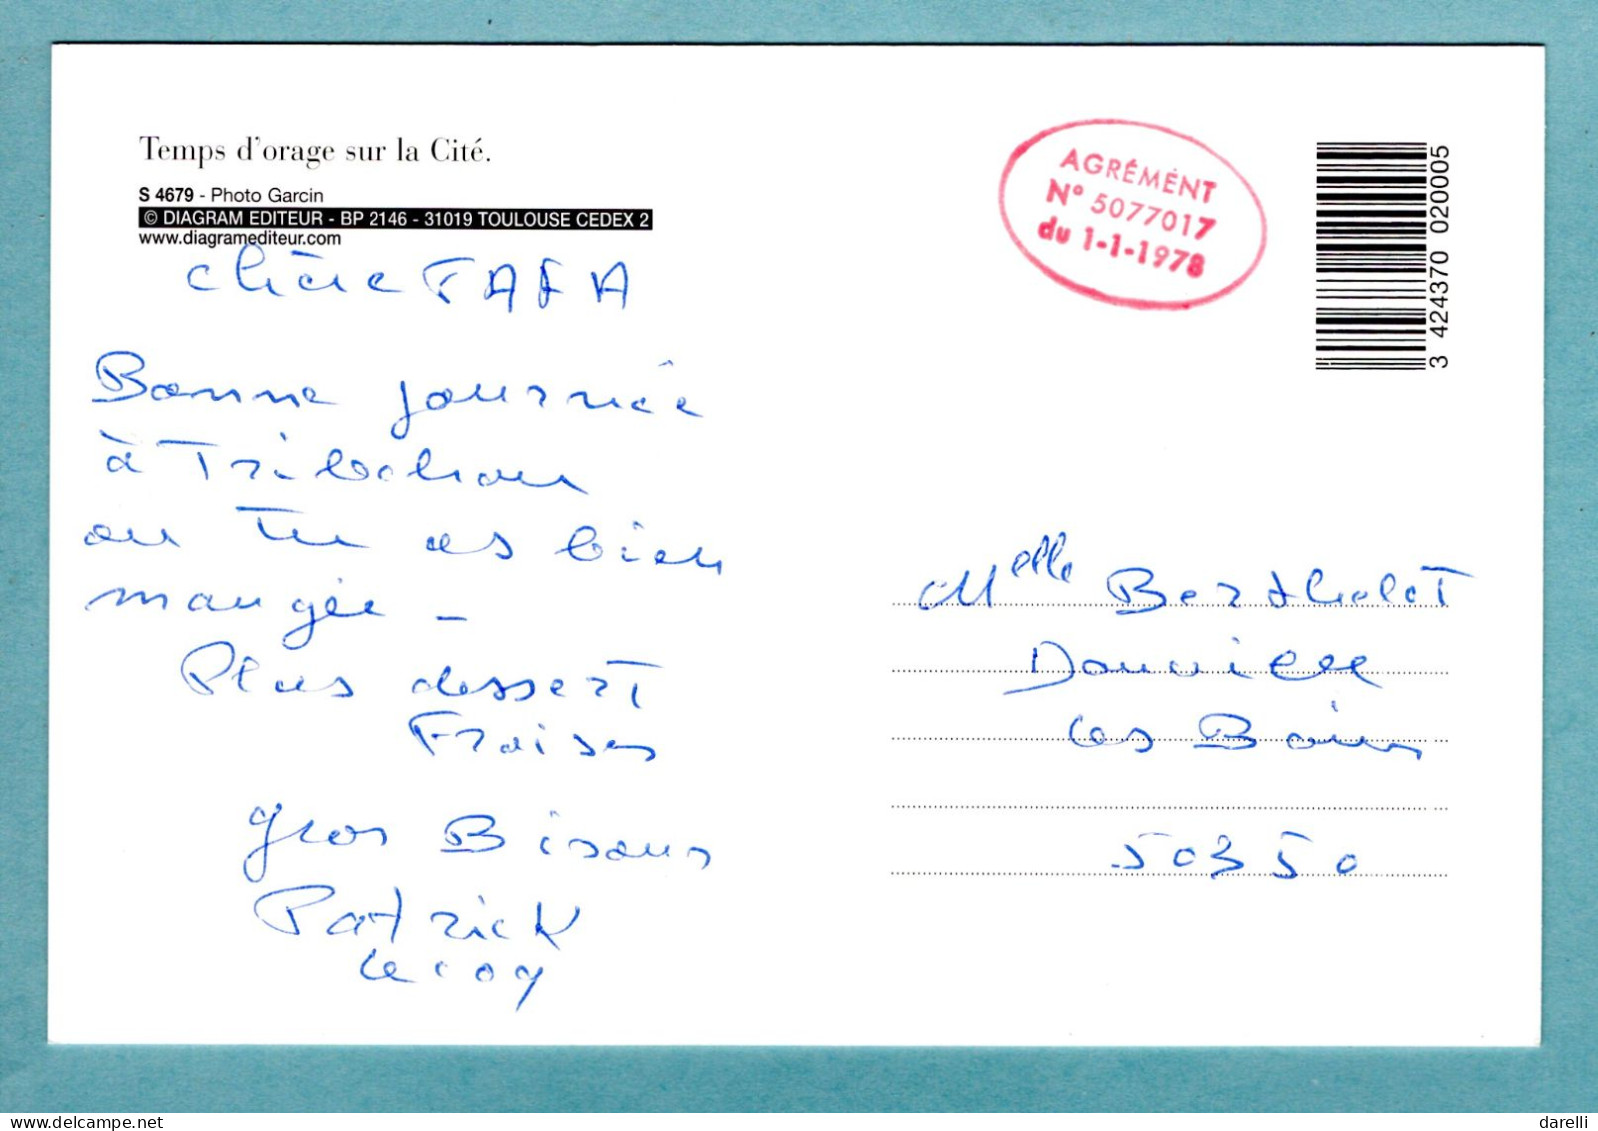 Temps d'orage sur la Cité.
S 4679 - Photo Garcin
© DIAGRAM EDITEUR - BP 2146 - 31019 TOULOUSE CEDEX 2
www.diagramediteur.com
AGRÉMENT
N° 5077017
du 1-1-1978
3 424370 020005
chère FAFA
Bonne journée
à Tribehou
ou tu as bien
mangée -
Plus dessert
Fraises
gros Bisous
Patrick
Lecoq
Melle Berthelot
Donville
Les Bains
50350
darelli